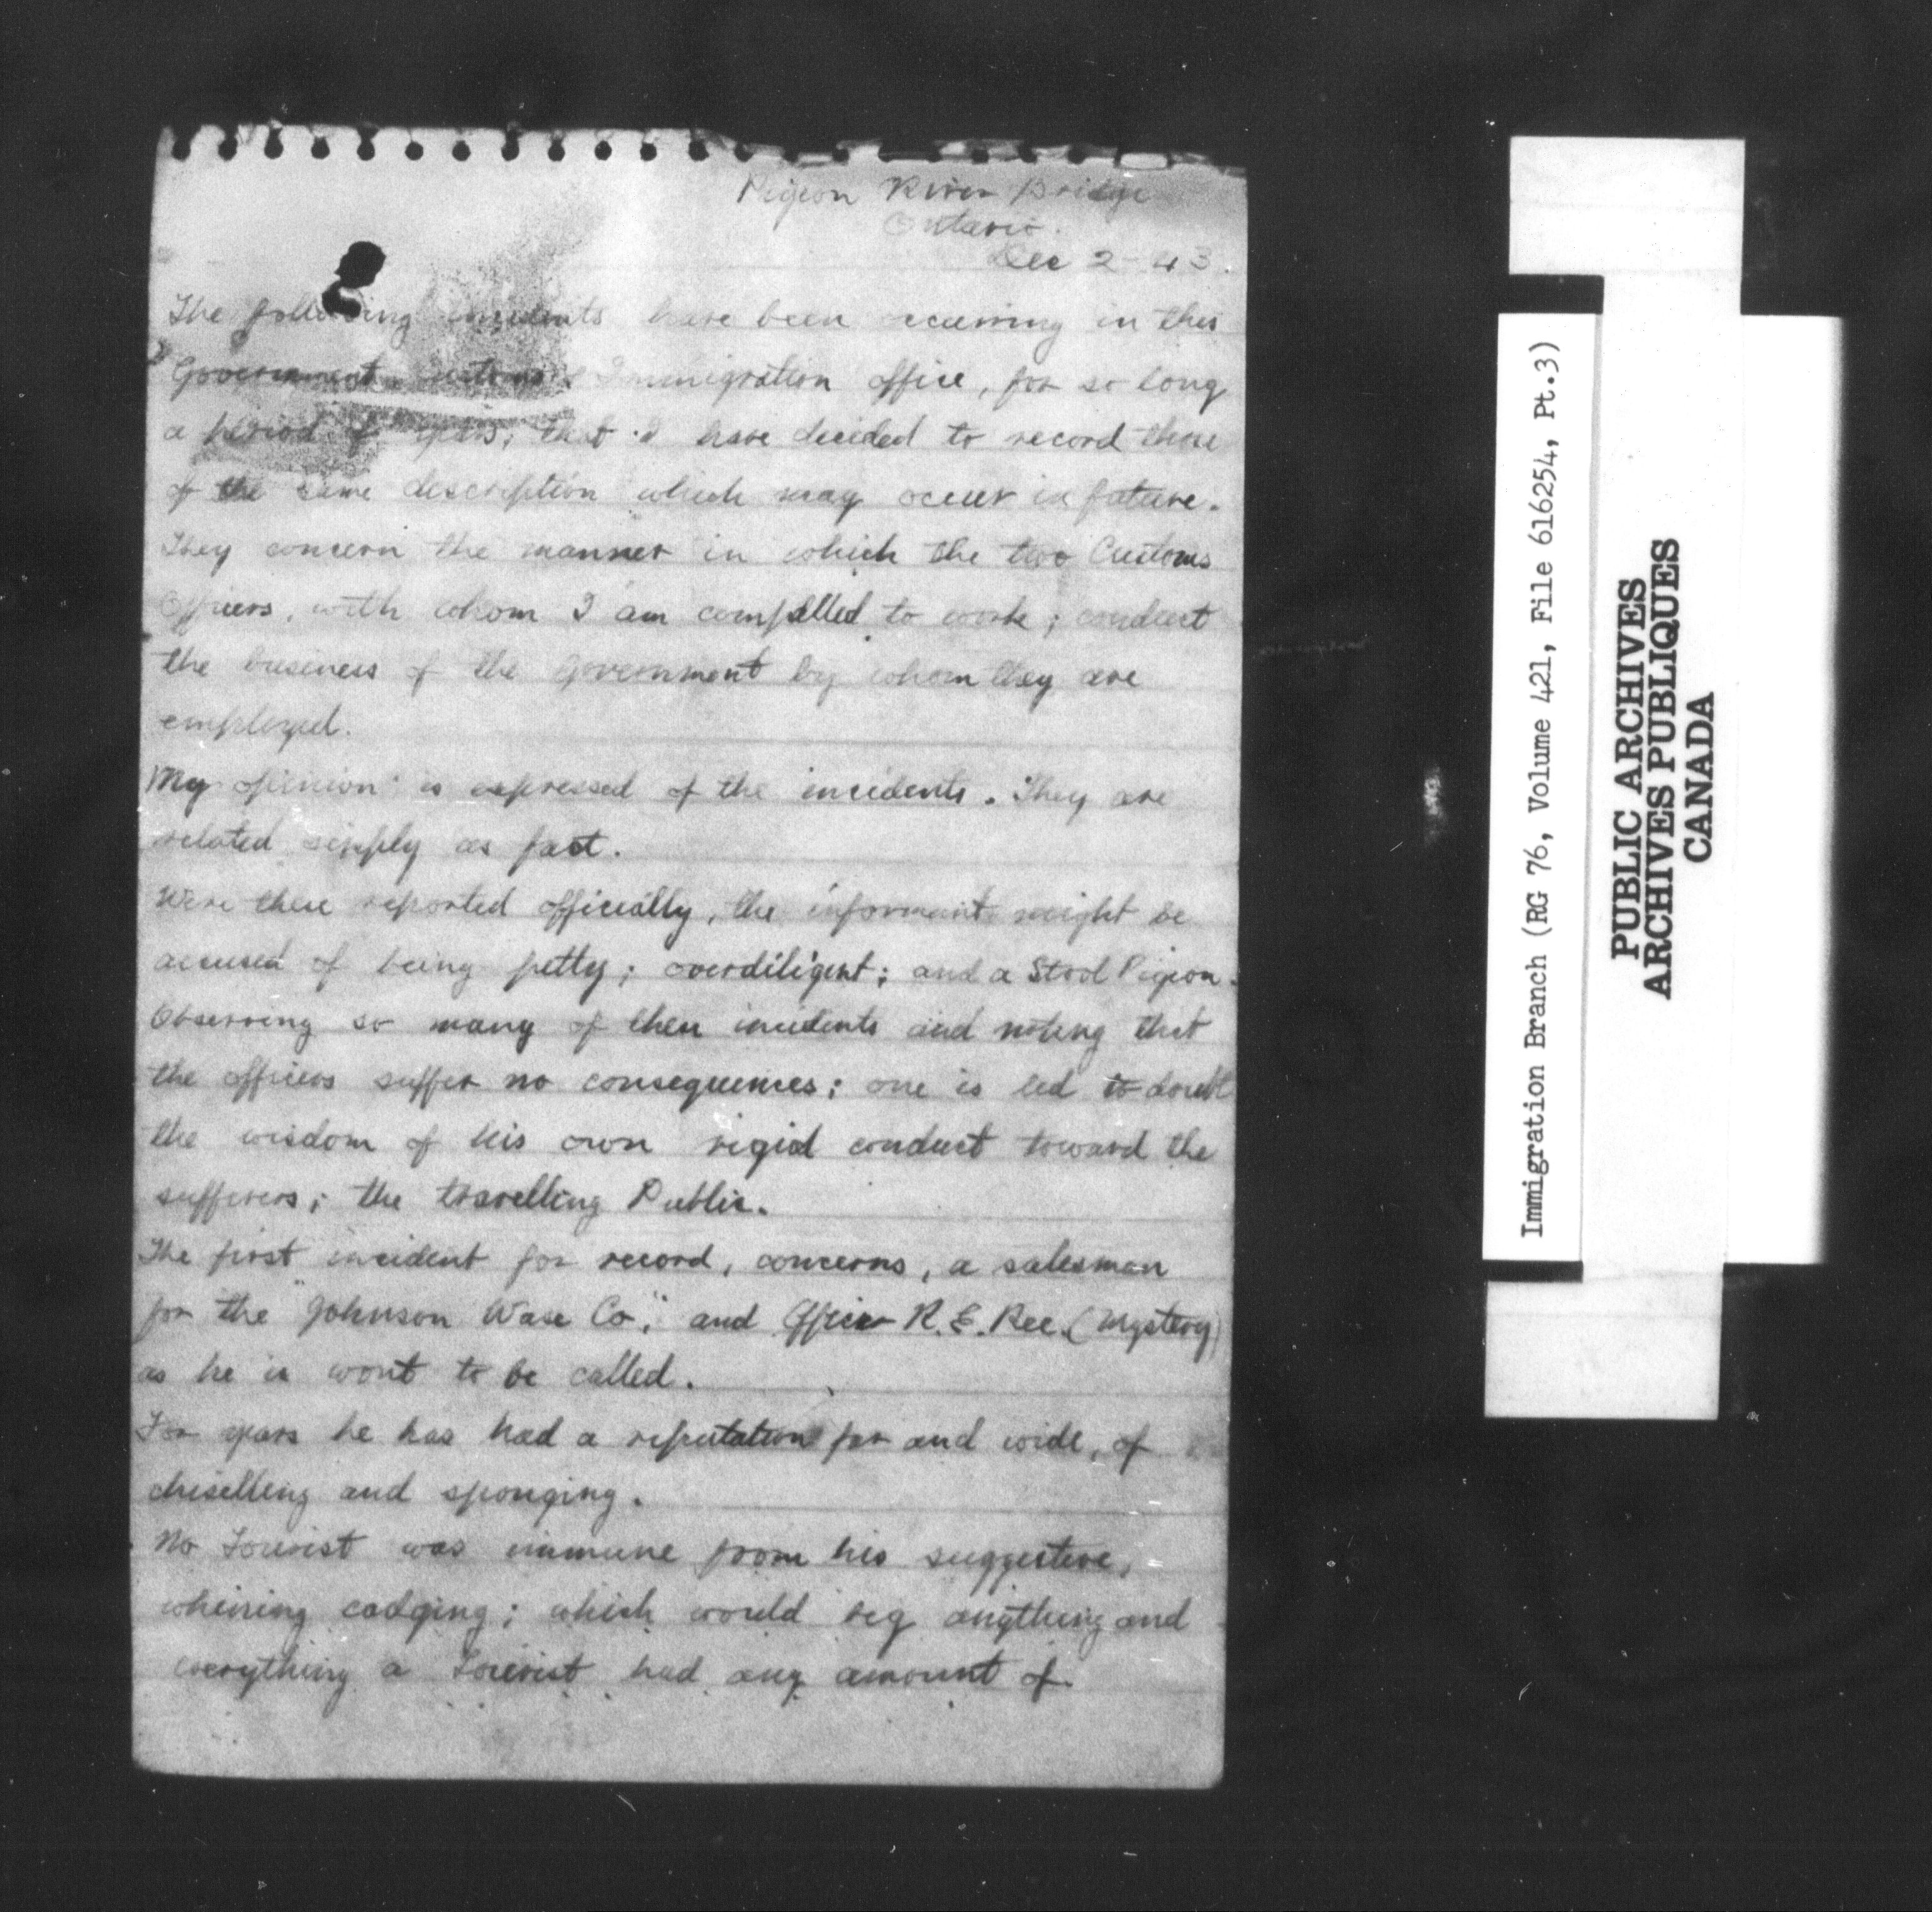 Pigeon River Bridge
Ontario.
Dec 2-43.
The following incidents have been occurring in this
Government Customs & Immigration office, for so long
a period of years, that I have decided to record those
of the same description which may occur in future.
They concern the manner in which the two Customs
Officers, with whom I am compelled to work; conduct
the business of the Government by whom they are
employed.
My opinion is expressed of the incidents. They are
related simply as fact.
Were these reported officially, the informant might be
accused of being petty; overdiligent; and a Stool Pigeon.
Observing so many of these incidents and noting that
the officers suffer no consequences; one is led to doubt
the wisdom of his own rigid conduct toward the
sufferers; the travelling Public.
The first incident for record, concerns, a salesman
for the "Johnson Wase Co," and Officer R.E. Ree. (Mystery)
as he is wont to be called.
For years he has had a reputation far and wide, of
chiselling and sponging.
No Tourist was immune from his suggestive,
whining cadging; which would beg anything and
everything a Tourist had any amount of.
Immigration Branch (RG 76, Volume 421, File 616254, Pt.3)
PUBLIC ARCHIVES
ARCHIVES PUBLIQUES
CANADA